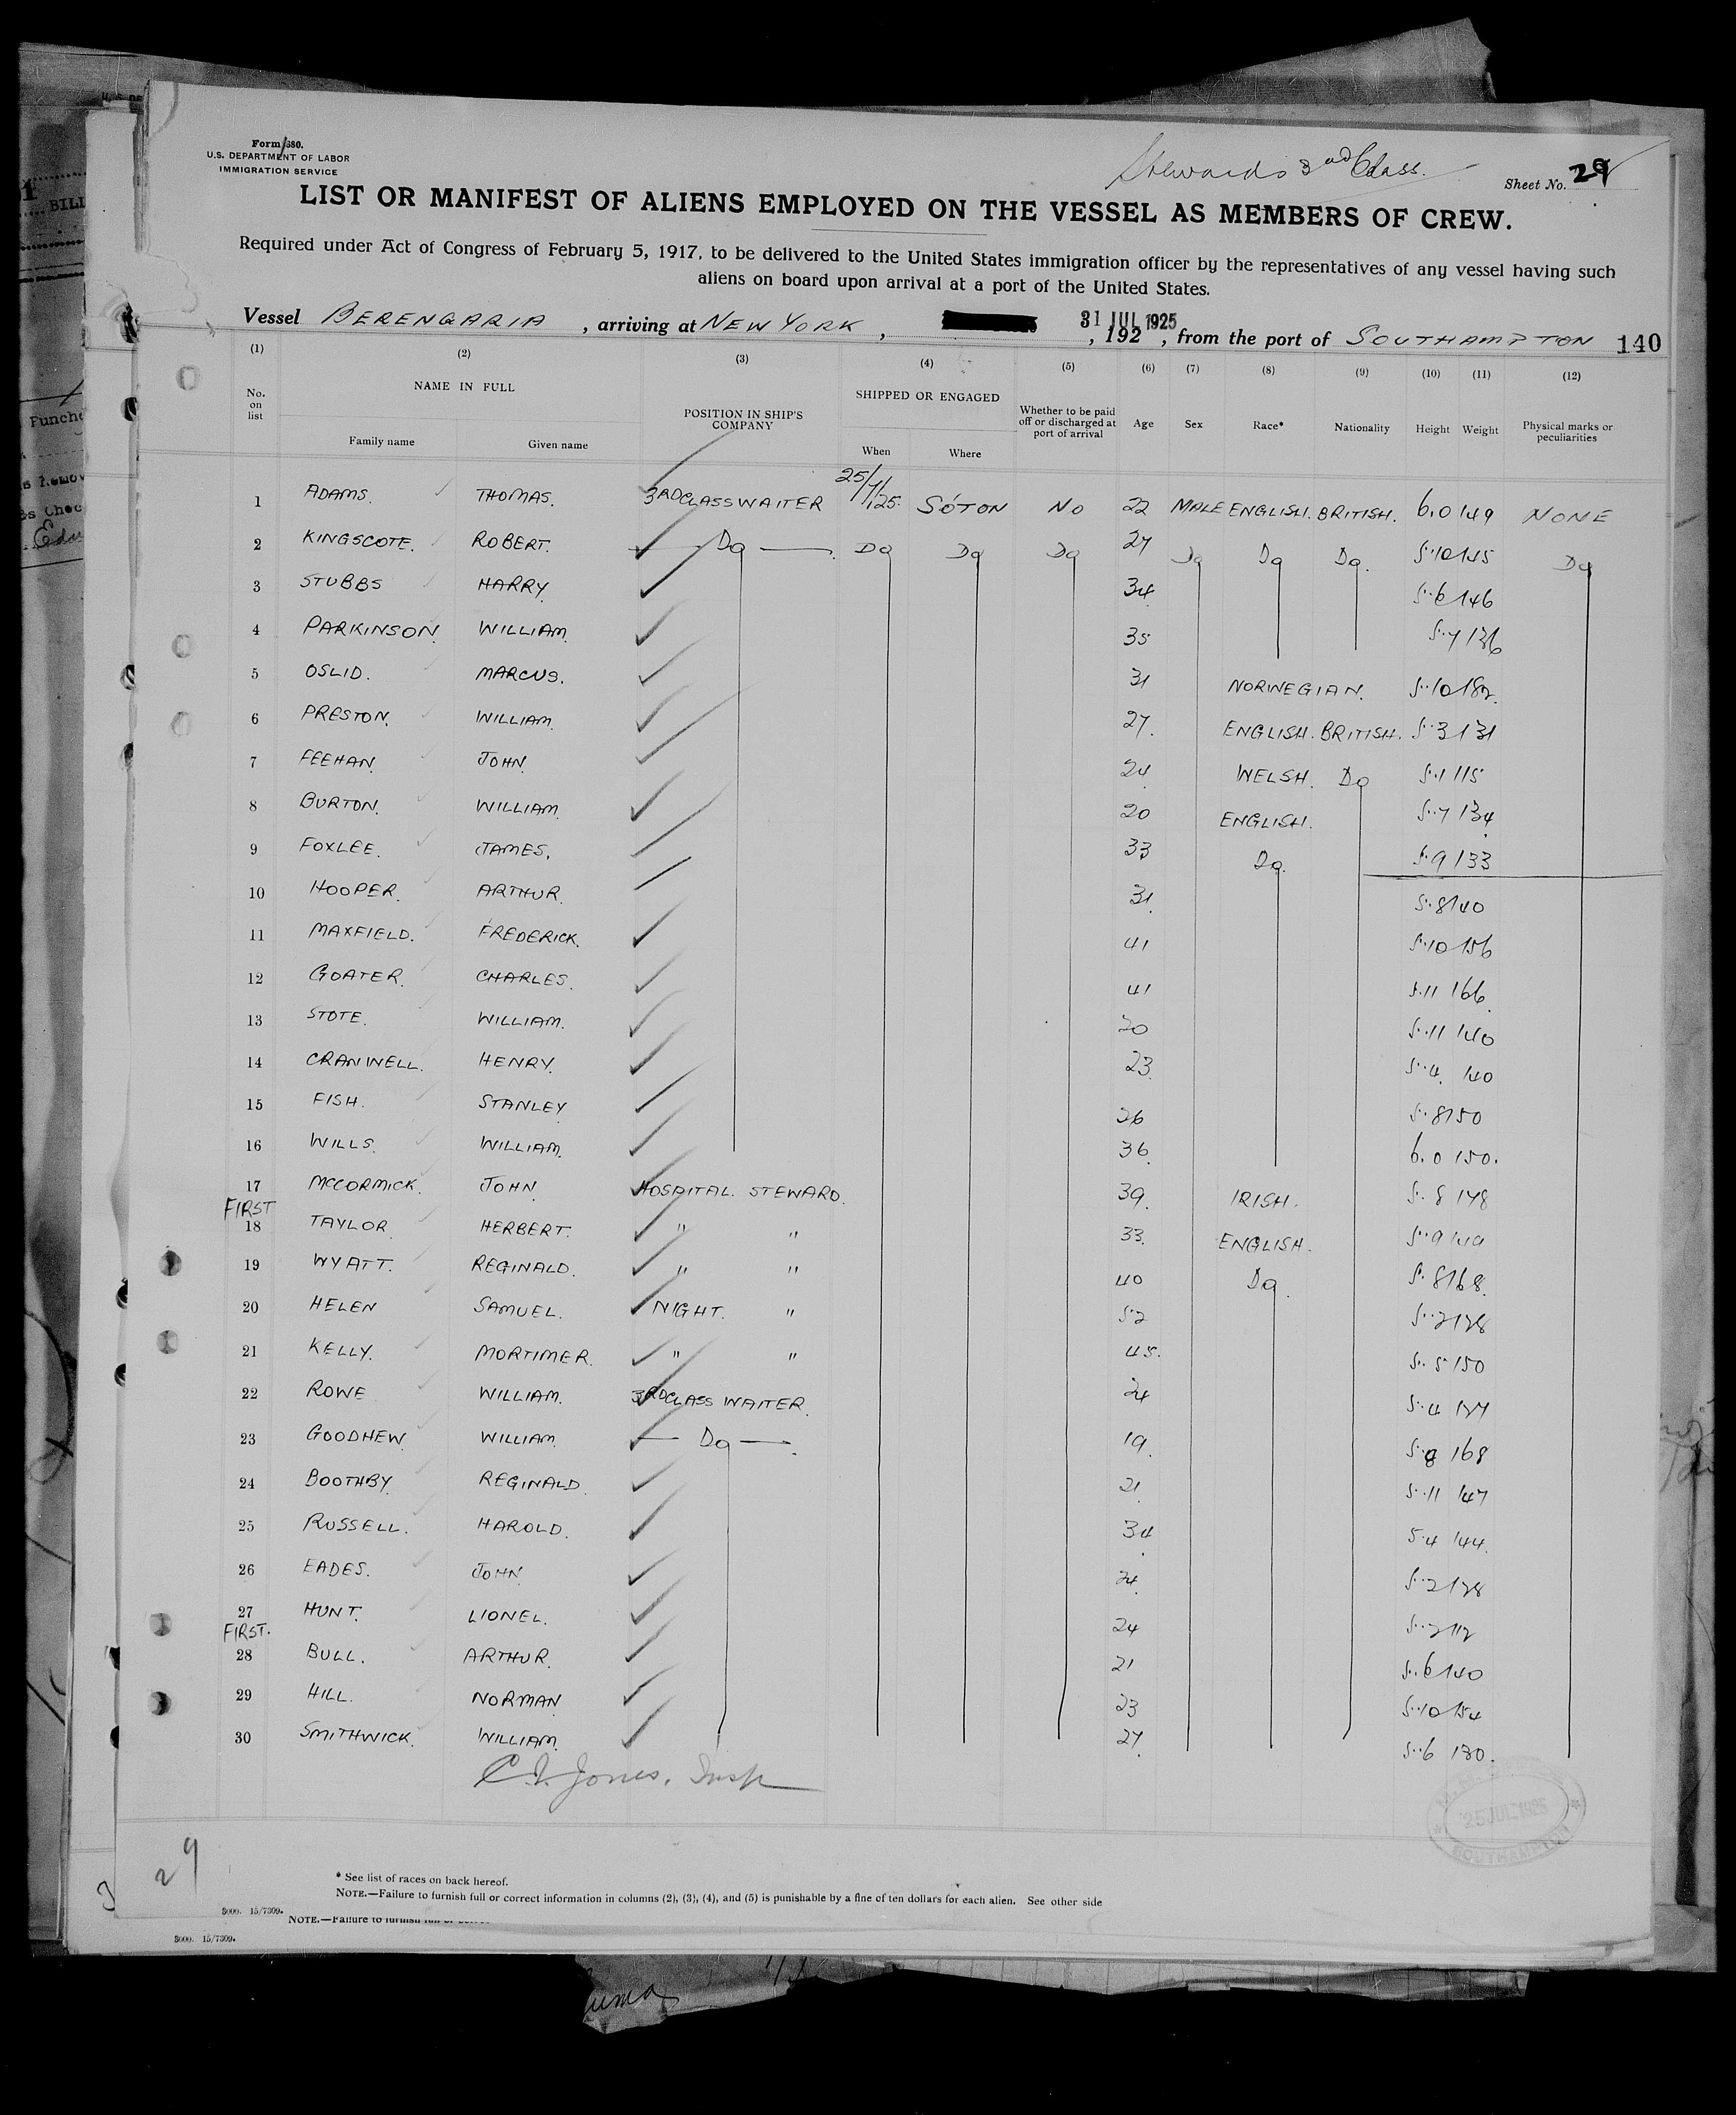 Form 680.
U.S. DEPARTMENT OF LABOR
IMMIGRATION SERVICE
Stewards 3rd Class.
Sheet No. 29
LIST OR MANIFEST OF ALIENS EMPLOYED ON THE VESSEL AS MEMBERS OF CREW.
Required under Act of Congress of February 5, 1917, to be delivered to the United States immigration officer by the representatives of any vessel having such
aliens on board upon arrival at a port of the United States.
Vessel BERENGARIA, arriving at NEW YORK, 31 JUL 1925, 192 , from the port of SOUTHAMPTON 140
(1) (2) (3) (4) (5) (6) (7) (8) (9) (10) (11) (12)
No. on list NAME IN FULL Family name Given name POSITION IN SHIP'S COMPANY SHIPPED OR ENGAGED When Where Whether to be paid off or discharged at port of arrival Age Sex Race* Nationality Height Weight Physical marks or peculiarities
1 ADAMS. THOMAS. 3RD CLASS WAITER 25/7/25. SO'TON NO 22 MALE ENGLISH. BRITISH. 6.0 149 NONE
2 KINGSCOTE. ROBERT. Do Do Do Do 27 Do Do Do. 5.10 145 Do
3 STUBBS HARRY. 34 5.6 146
4 PARKINSON. WILLIAM. 35 5.7 136
5 OSLID. MARCUS. 31 NORWEGIAN. 5.10 182.
6 PRESTON. WILLIAM. 27. ENGLISH. BRITISH. 5.3 131
7 FEEHAN. JOHN. 24 WELSH. Do 5.1 115
8 BURTON. WILLIAM. 20 ENGLISH. 5.7 134
9 FOXLEE. JAMES. 33 Do. 5.9 133
10 HOOPER. ARTHUR. 31. 5.8 140
11 MAXFIELD. FREDERICK. 41 5.10 156
12 GOATER. CHARLES. 41 5.11 166
13 STOTE. WILLIAM. 20 5.11 140
14 CRANWELL. HENRY. 23. 5.4. 140
15 FISH. STANLEY 26 5.8 150
16 WILLS. WILLIAM. 36. 6.0 150.
17 MCCORMICK. JOHN. HOSPITAL. STEWARD. 39. IRISH. 5.8 178
FIRST
18 TAYLOR HERBERT. " " 33. ENGLISH. 5.9 149
19 WYATT. REGINALD. " " 40 Do. 5.8 168.
20 HELEN SAMUEL. NIGHT. " 52 5.2 128
21 KELLY. MORTIMER. " " 45. 5.5 150
22 ROWE WILLIAM. 3RD CLASS WAITER. 24 5.4 137
23 GOODHEW. WILLIAM. Do 19. 5.8 168
24 BOOTHBY. REGINALD. 21. 5.11 147
25 RUSSELL. HAROLD. 34 5.4 144.
26 EADES. JOHN 24. 5.2 128
27 HUNT. LIONEL. 24 5.2 112
FIRST.
28 BULL. ARTHUR. 21 5.6 140
29 HILL. NORMAN 23 5.10 154
30 SMITHWICK. WILLIAM. 27. 5.6 130.
C. J. Jones, Insp
25 JUL 1925
SOUTHAMPTON
29
* See list of races on back hereof.
NOTE.—Failure to furnish full or correct information in columns (2), (3), (4), and (5) is punishable by a fine of ten dollars for each alien. See other side
3000. 15/7309.
NOTE.—Failure to furnish full or
3000. 15/7309.